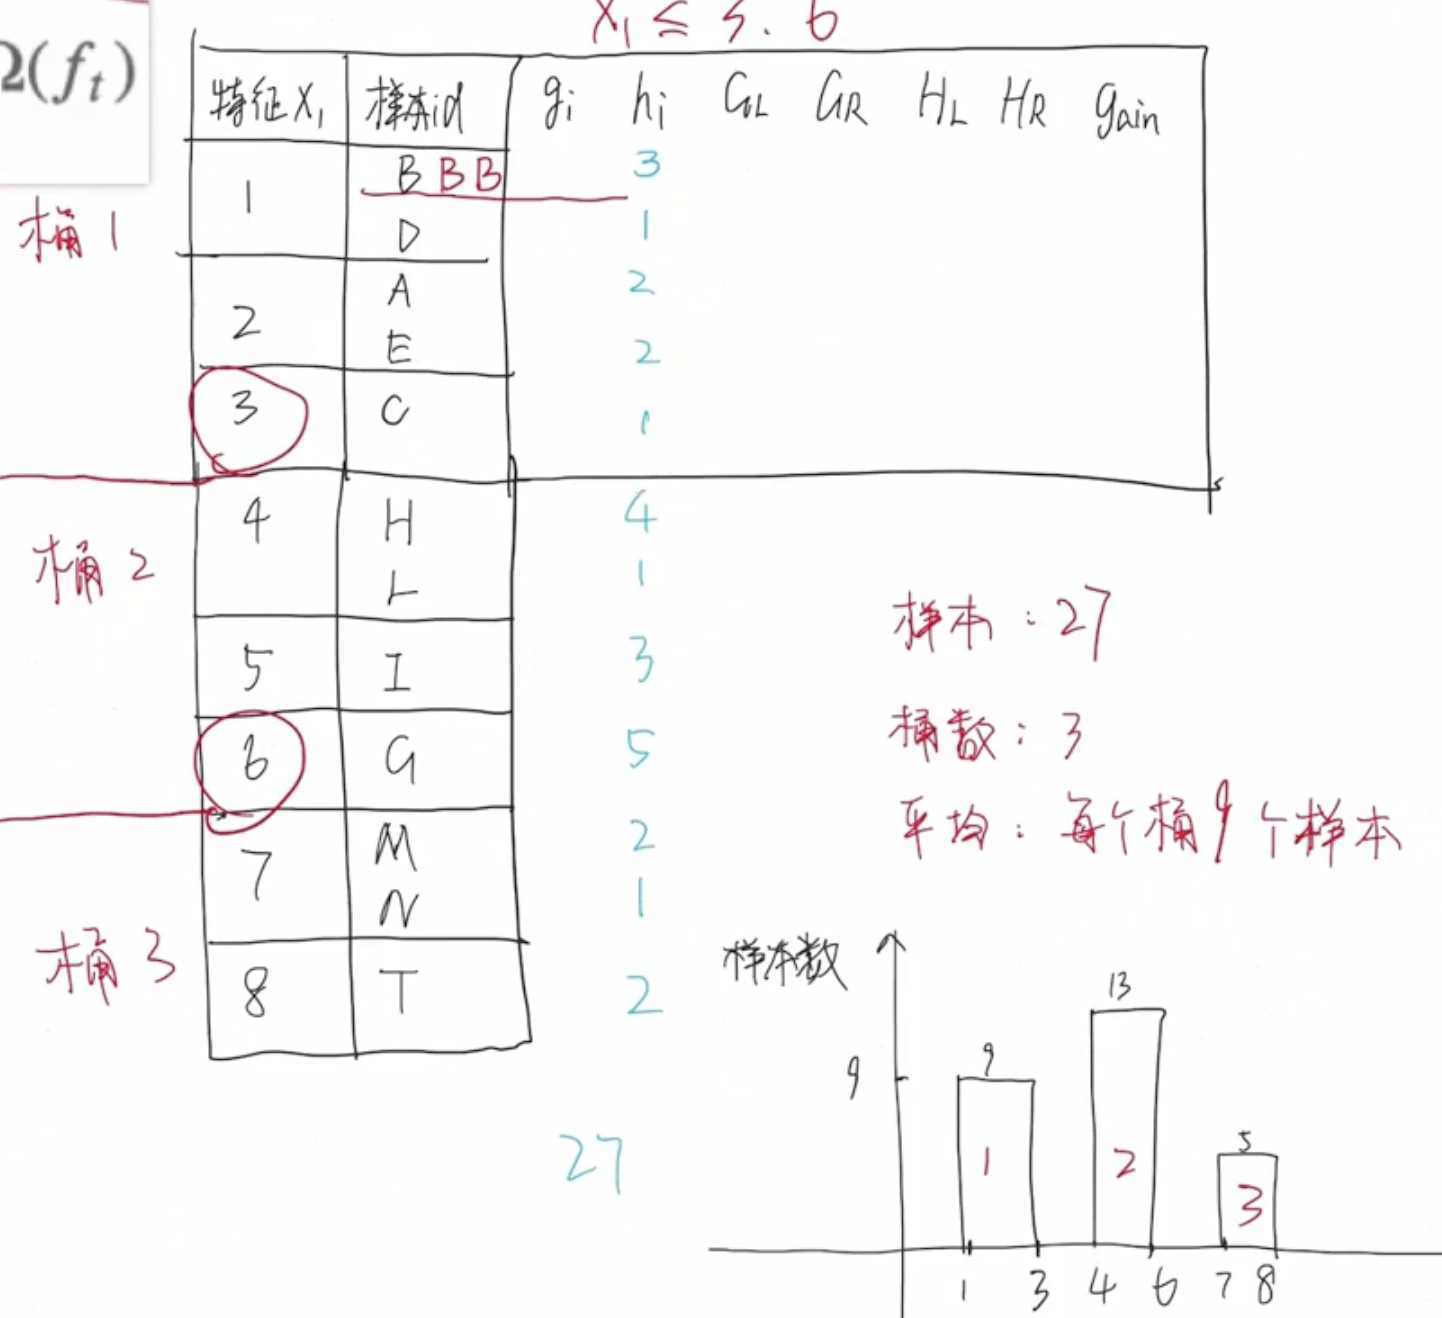 x₁ ≤ 3. 6
Ω(fₜ)
特征X₁ 样本id gᵢ hᵢ GL GR HL HR gain
桶1
1 B B B 3
D 1
2 A 2
E 2
3 C 1
桶2
4 H 4
L 1
5 I 3
6 G 5
桶3
7 M 2
N 1
8 T 2
27
样本:27
桶数:3
平均:每个桶9个样本
样本数
9
9 13 5
1 2 3
1 3 4 6 7 8